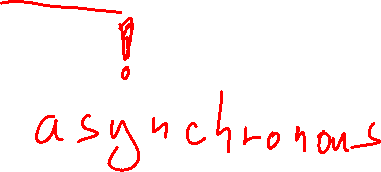 !
asynchronous